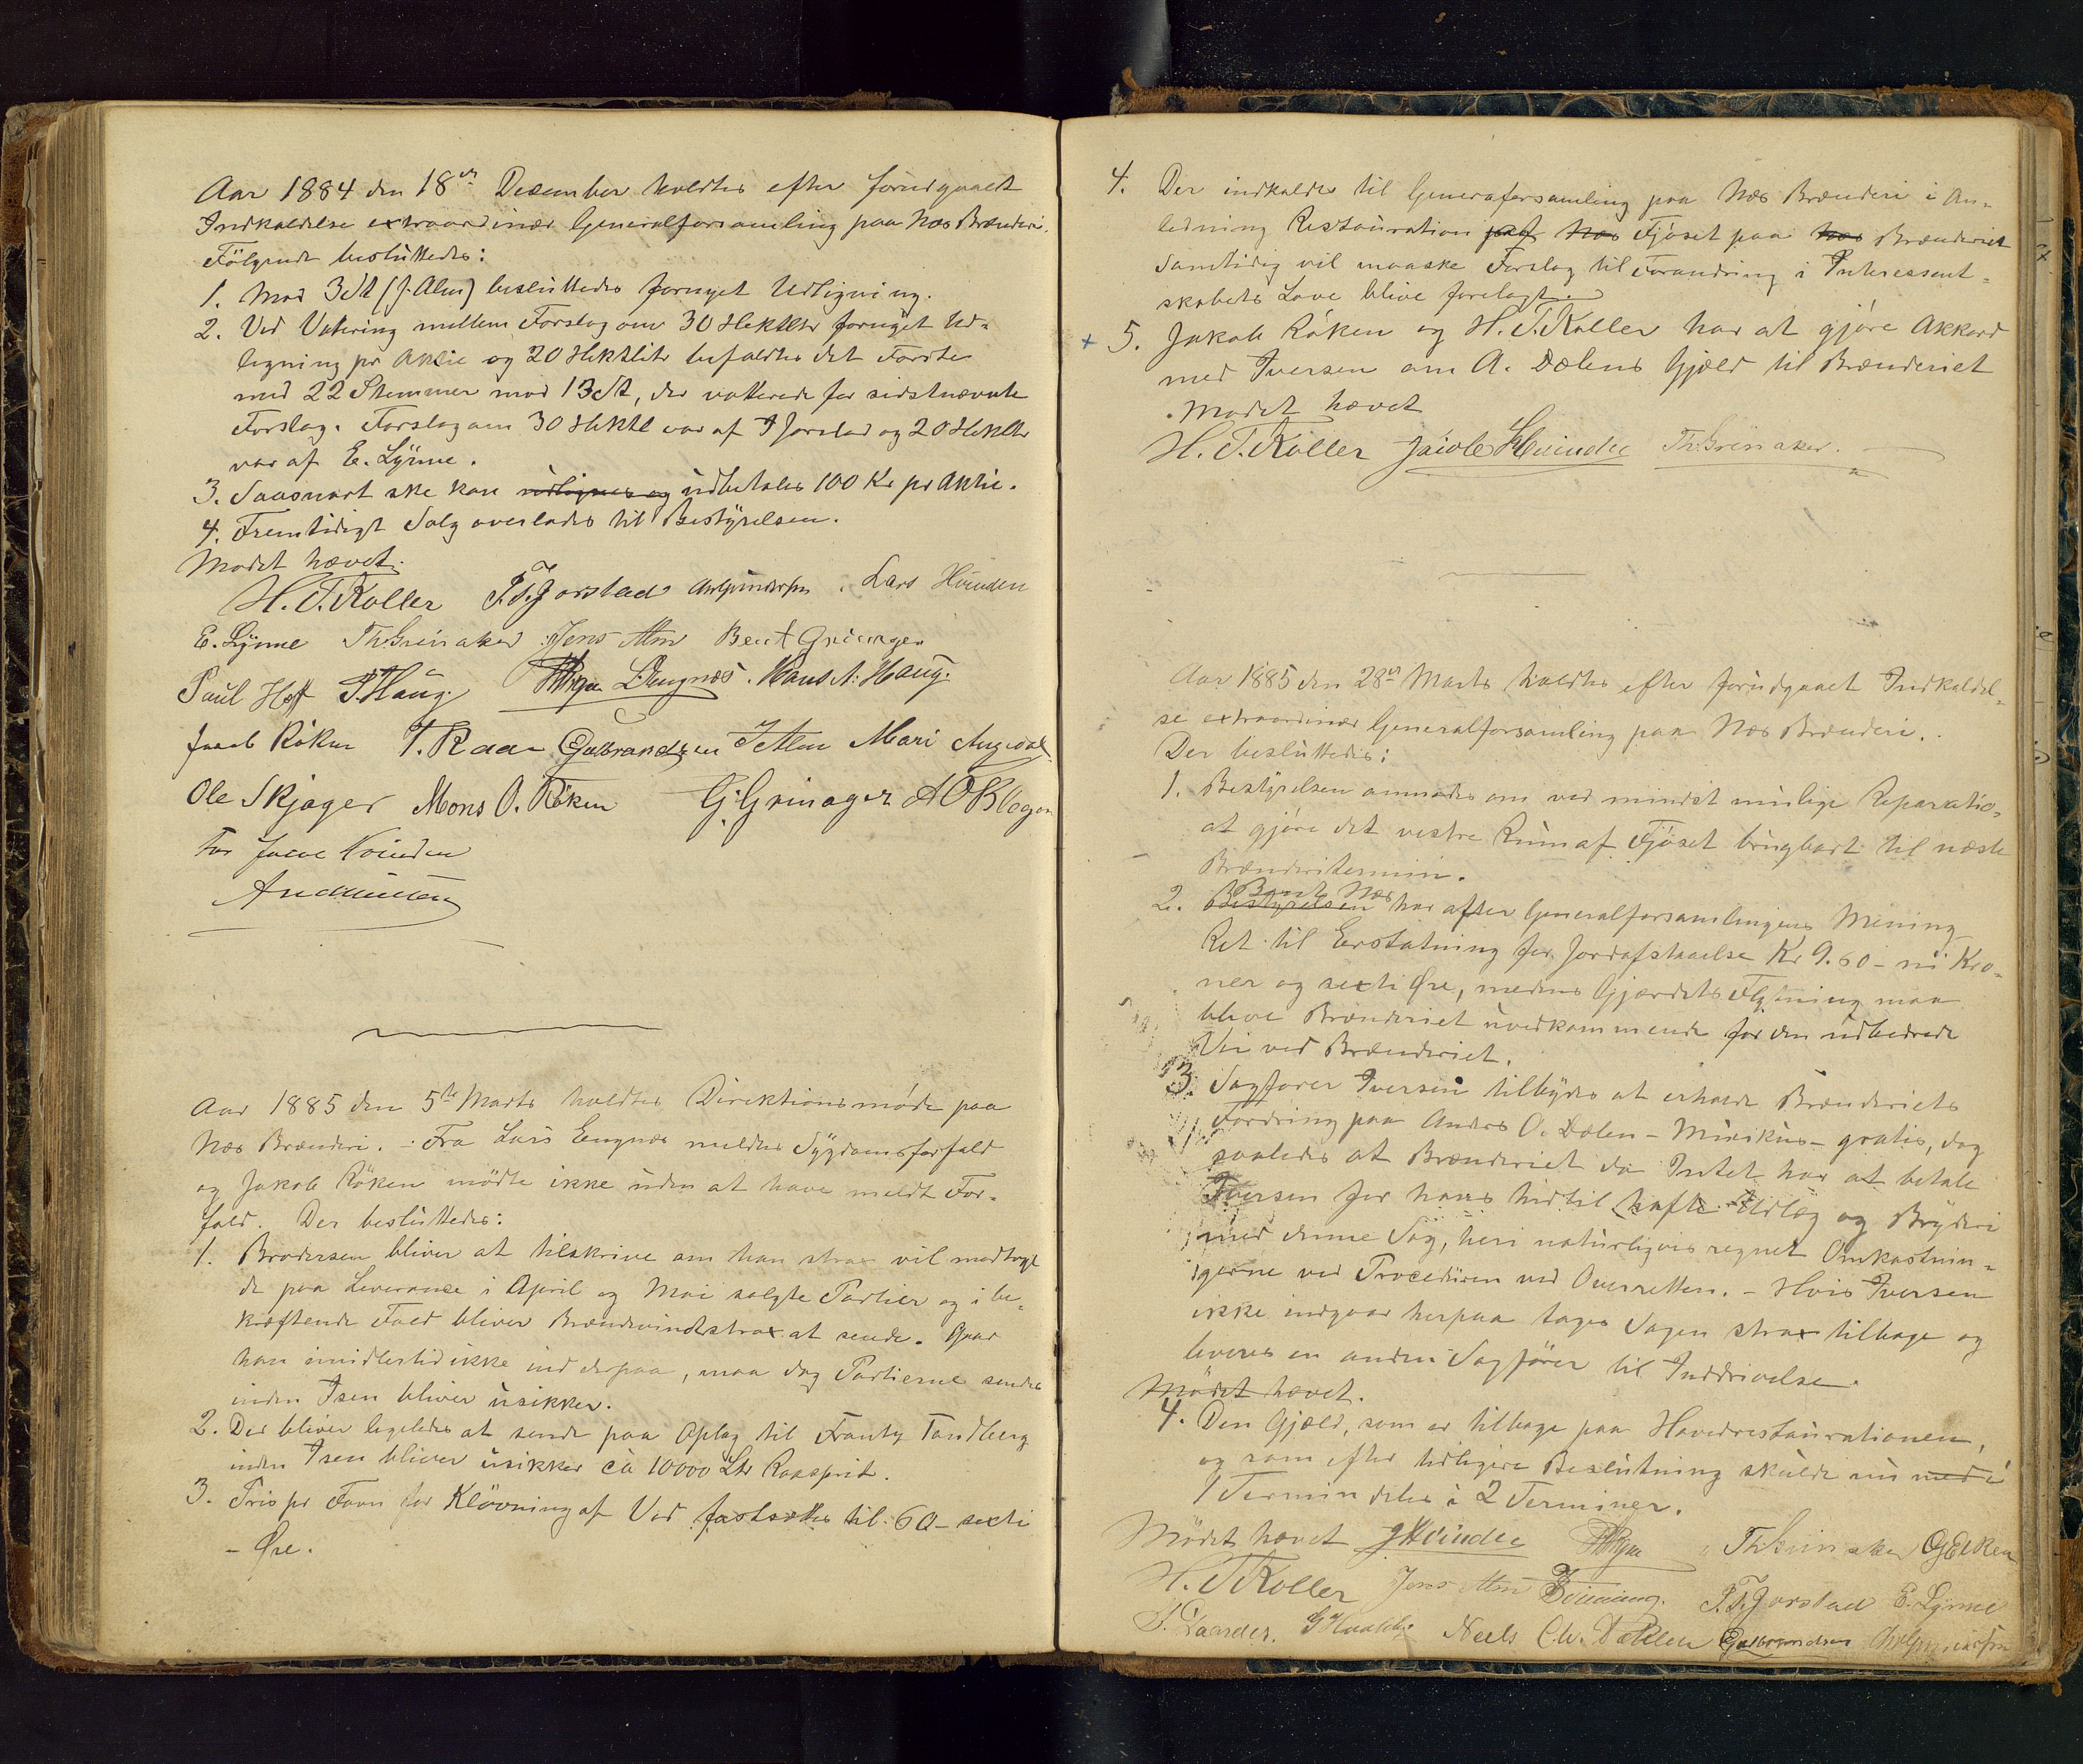 Aar 1884 den 18de December holdtes efter forudgaaet
Indkaldelse extraordinær Generalforsamling paa Næs Brænderi.
Følgende besluttedes:
1. Mod 3 St (J. Alm) besluttedes fornyet Udligning.
2. Ved Votering mellem Forslag om 30 Hektltr fornyet Ud-
ligning pr Aktie og 20 Hektlitr befaldtes det Første
med 22 Stemmer mod 13 St, der votterede for sidstnævnte
Forslag. Forslag om 30 Hektl var af Jorstad og 20 Hektltr
var af E. Lynne.
3. Saasnart ske kan udlignes og udbetales 100 Kr pr Aktie.
4. Fremtidigt Salg overlades til Bestyrelsen.
Mødet hævet.
H. T. Koller P. T. Jorstad Lars Hvinden
E. Lynne Th. Grinaker Jens Alm Bent Grinager
Paul Hoff P. Haug Engnæs. Hans A. Haug.
Jacob Røken T. Raa Gulbrandsen J Alm Mari Augedal
Ole Skjager Mons O. Røken G. Grinager A O Klegon
for Jacob Hvinden

Aar 1885 den 5te Marts holdtes Direktionsmøde paa
Næs Brænderi. – Fra Lars Engnæs meldtes Sygdomsforfald
og Jakob Røken mødte ikke uden at have meldt For-
fald. Der besluttedes:
1. Brodersen bliver at tilskrive om han strax vil modtage
de paa Leverance i April og Mai solgte Partier og i be-
kræftende Fald bliver Brændevinet strax at sende. Gaar
han imidlertid ikke ind derpaa, maa dog Partierne sendes
inden Isen bliver usikker.
2. Der bliver ligeledes at sende paa Oplag til Frantz Tandberg
inden Isen bliver usikker ca 10000 Ltr Raasprit.
3. Pris pr Favn for Kløvning af Ved fastsættes til 60 – sexti
– Øre.
4. Der indkaldes til Generaforsamling paa Næs Brænderi i An-
ledning Restauration af Næs Fjøset paa Næs Brænderiet
Samtidig vil maaske Forslag til Forandring i Interessent-
skabets Love blive forelagt.
+ 5. Jakob Røken og H. T. Koller har at gjøre Akkord
med Iversen om A. Dælens Gjæld til Brænderiet
Mødet hævet
H. T. Koller Jacob Hvinden Th. Grinaker.

Aar 1885 den 28de Marts holdtes efter forudgaaet Indkaldel-
se extraordinær Generalforsamling paa Næs Brænderi.
Der besluttedes:
1. Bestyrelsen anmodes om ved mindst mulige Reparatio-
at gjøre det vestre Rum af Fjøset brugbart til næste
Brænderitermin.
Bent Næs
2. Bestyrelsen har efter Generalforsamlingens Mening
Ret til Erstatning for Jordafstaaelse Kr 9.60 – ni Kro-
ner og sexti Øre, medens Gjærdets Flytning maa
blive Brænderiet uvedkommende for den udbedrede
Vei ved Brænderiet.
3. Sagfører Iversen tilbydes at erholde Brænderiets
Fordring paa Anders O. Dælen – Minikus – gratis, dog
saaledes at Brænderiet da Intet har at betale
Iversen for hans hidtil hafte Udlæg og Bryderi
med denne Sag, heri naturligvis regnet Omkostnin-
gerne ved Proceduren ved Overretten. – Hvis Iversen
ikke indgaar herpaa tages Sagen strax tilbage og
leveres en anden Sagfører til Inddrivelse.
Mødet hævet.
4. Den Gjæld, som er tilbage paa Hovedrestaurationen,
og som efter tidligere Beslutning skulde nu med i
1 Termin deles i 2 Terminer.
Mødet hævet J Hvinden Th. Grinaker
H. T. Koller Jens Alm P. T. Jorstad E. Lynne
Neels Chr. Dæhlen Gulbrandsen